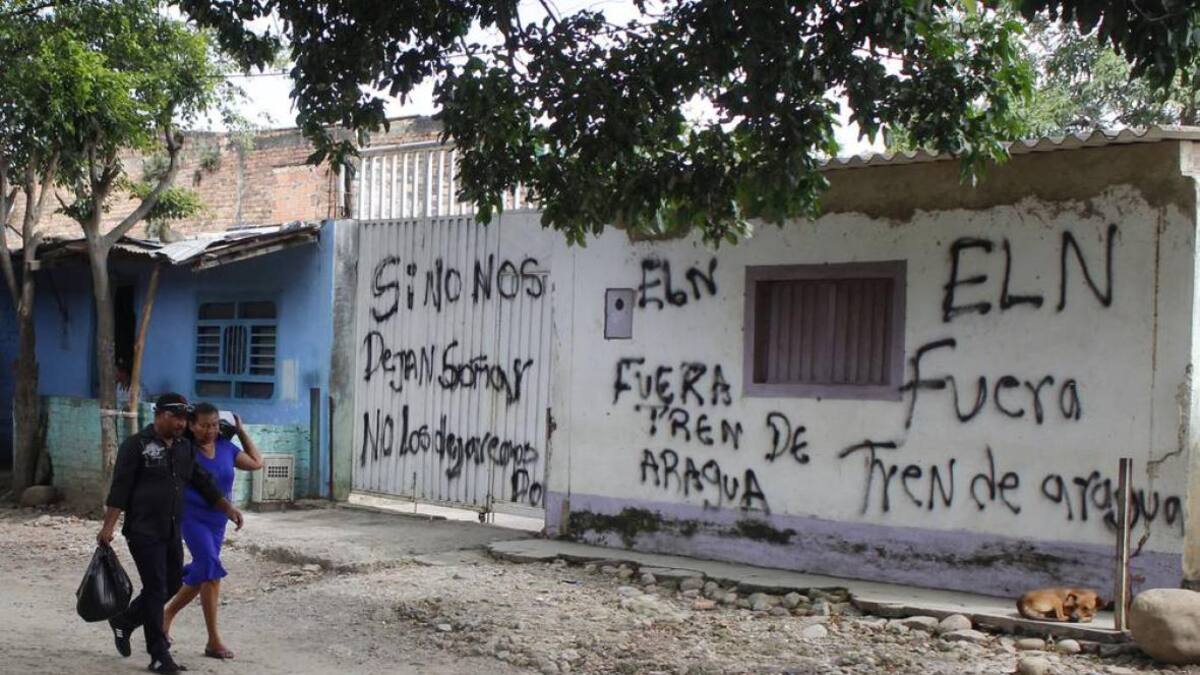 Si NO NOS
DeJAN Soñar
NO Los dejaremos
DO
ELN
FUERA
TREN DE
ARAgUA
ELN
Fuera
Tren de aragua